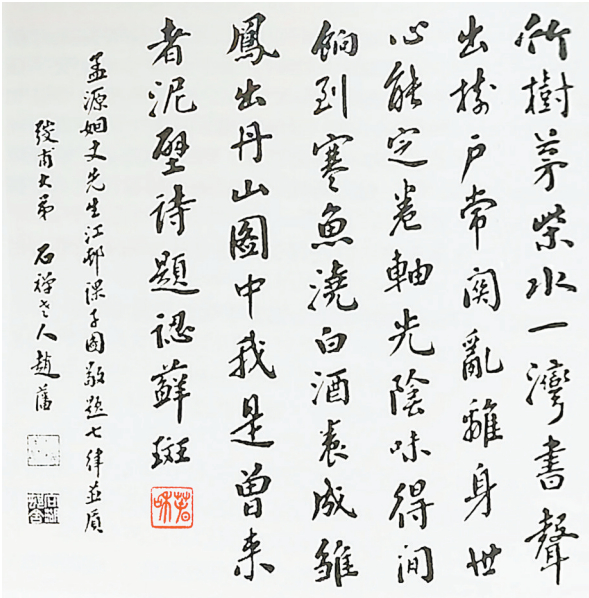 竹樹茅柴水一灣書聲
出戶常關亂離身世
心能定卷軸光陰味得間
餉到寒魚澆白酒養成雛
鳳出丹山圖中我是曾來
者泥壁詩題認蘚斑
孟源姻丈先生江邨課子圖敬題七律並質
甫大弟 石禪老人趙藩